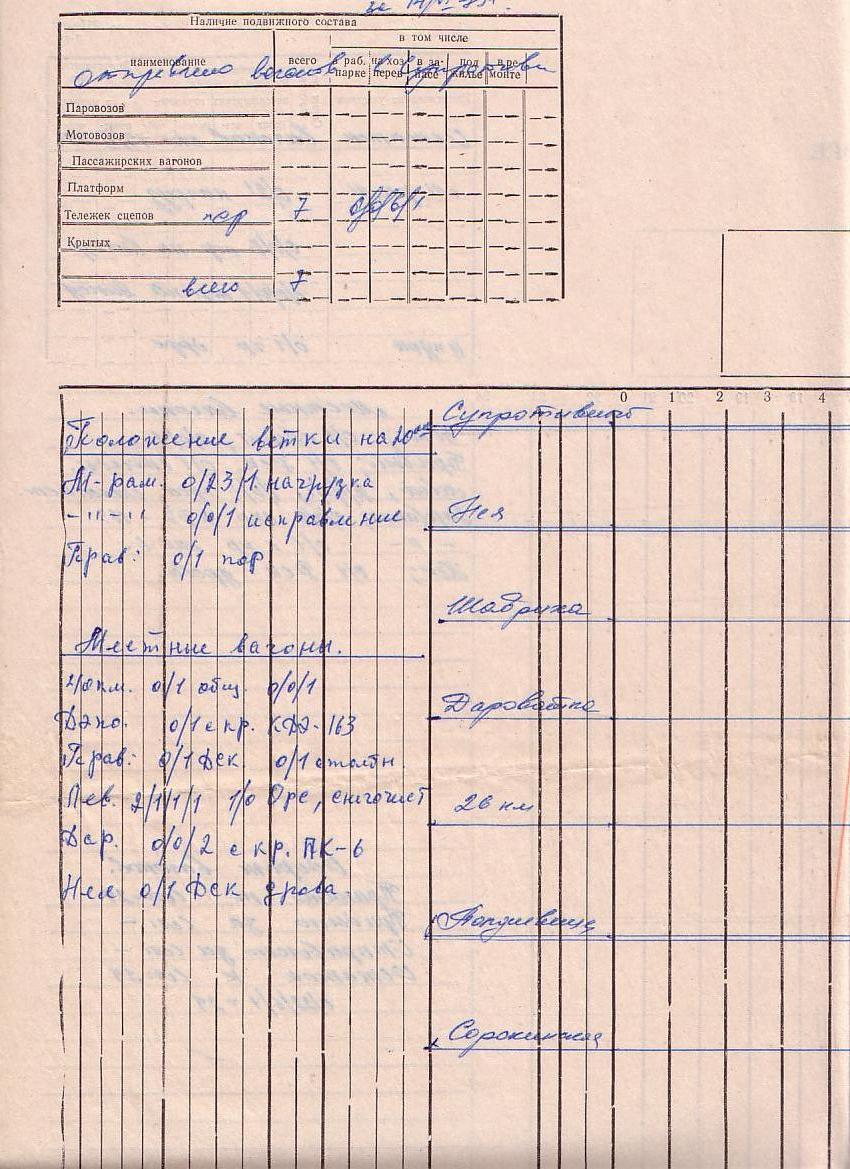 Наличие подвижного состава
в том числе
наименование всего в раб. парке на хоз. перев в за- пасе под жилье в ре монте
отправлено вагонов
Паровозов
Мотовозов
Пассажирских вагонов
Платформ
Тележек сцепов пор 7 0/0/6/1
Крытых
всего 7
0 1 2 3 4
Супротивный
Положение ветки на 20
М-рам. 0/23/1 нагрузка
-"-"- 0/0/1 исправление
Нея
Прав: 0/1 пор
Шабриха
Местные вагоны.
0/1 общ. 0/0/1
Дароватка
Дэпо. 0/1 с кр. КДЭ-163
Прав: 0/1 Фск. 0/1 столбн.
2/1/1/1 1/0 Орс,
26 км
Дар. 0/0/2 с кр. ПК-6
Нея 0/1 Фск дрова.
Полдневица
Сорокинская